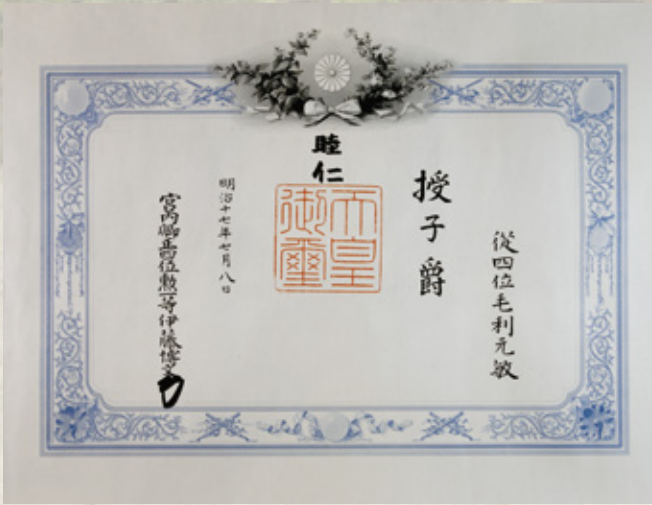 從四位毛利元敏
授子爵
睦仁
天皇御璽
明治十七年七月八日
宮内卿正四位勲一等伊藤博文